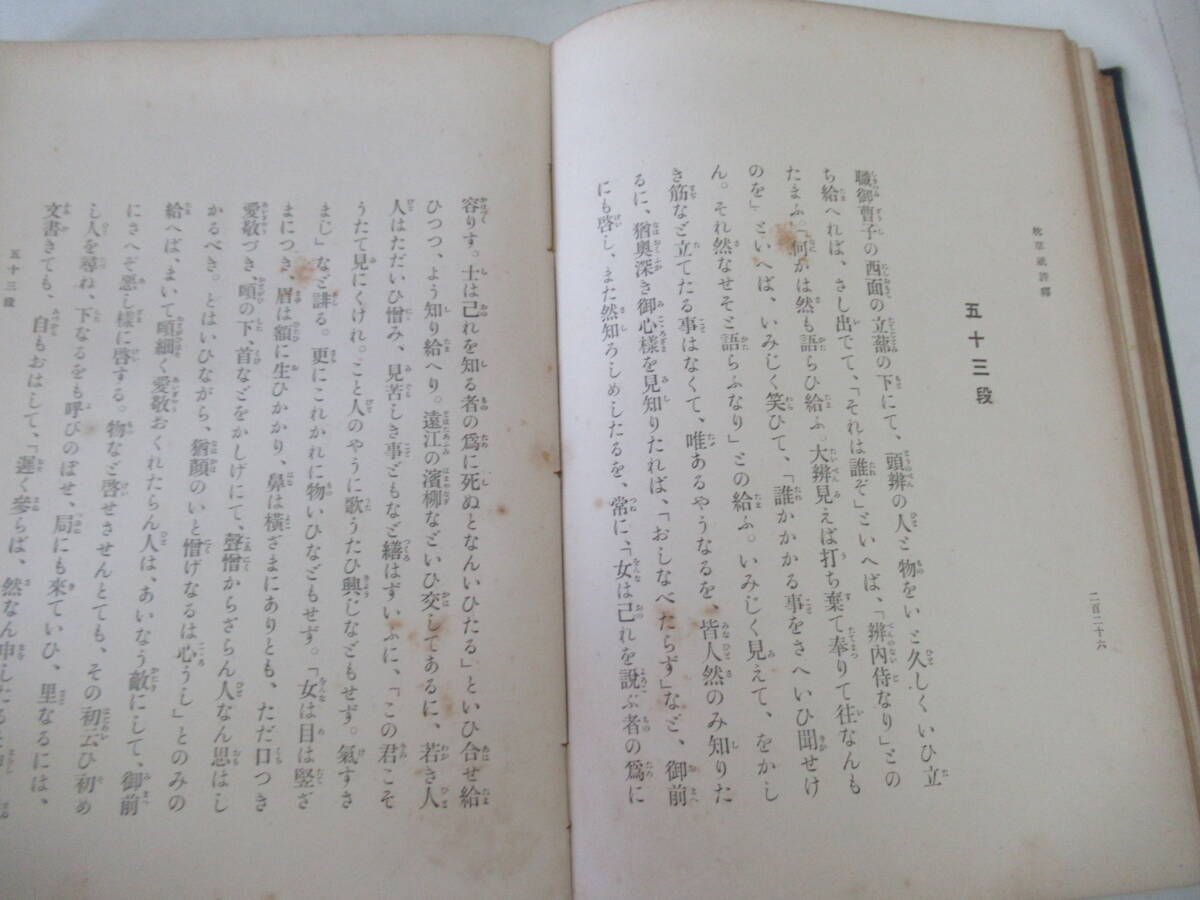 枕草紙評釋
二百二十六
五十三段
職御曹子の西面の立蔀の下にて、頭辨の人と物をいと久しくいひ立
ち給へれば、さし出でて、「それは誰ぞ」といへば、「辨內侍なり」との
たまふ。「何かは然も語らひ給ふ。大辨見えば打ち棄て奉りて往なんも
のを」といへば、いみじく笑ひて、「誰かかる事をさへいひ聞せけ
ん。それ然なせそと語らふなり」との給ふ。いみじく見えて、をかし
き筋など立てたる事はなくて、唯あるやうなるを、皆人然のみ知りた
るに、猶奧深き御心樣を見知りたれば、「おしなべたらず」など、御前
にも啓し、また然知ろしめしたるを、常に、「女は己れを說ぶ者の爲に
容りす。士は己れを知る者の爲に死ぬとなんいひたる」といひ合せ給
ひつつ、よう知り給へり。遠江の濱柳などいひ交してあるに、若き人
人はただいひ憎み、見苦しき事どもなど繕はずいふに、「この君こそ
うたて見にくけれ。こと人のやうに歌うたひ興じなどもせず。氣すさ
まじ」など誹る。更にこれかれに物いひなどもせず。「女は目は竪ざ
まにつき、眉は額に生ひかかり、鼻は橫ざまにありとも、ただ口つき
愛敬づき、頤の下、首などをかしげにて、聲憎からざらん人なん思はし
かるべき。とはいひながら、猶顏のいと憎げなるは心うし」とのみの
給へば、まいて頤細く愛敬おくれたらん人は、あいなう敵にして、御前
にさへぞ惡し樣に啓する。物など啓せさせんとても、その初云ひ初め
し人を尋ね、下なるをも呼びのぼせ、局にも來ていひ、里なるには、
文書きても、自もおはして、「遲く參らば、然なん申したると
五十三段